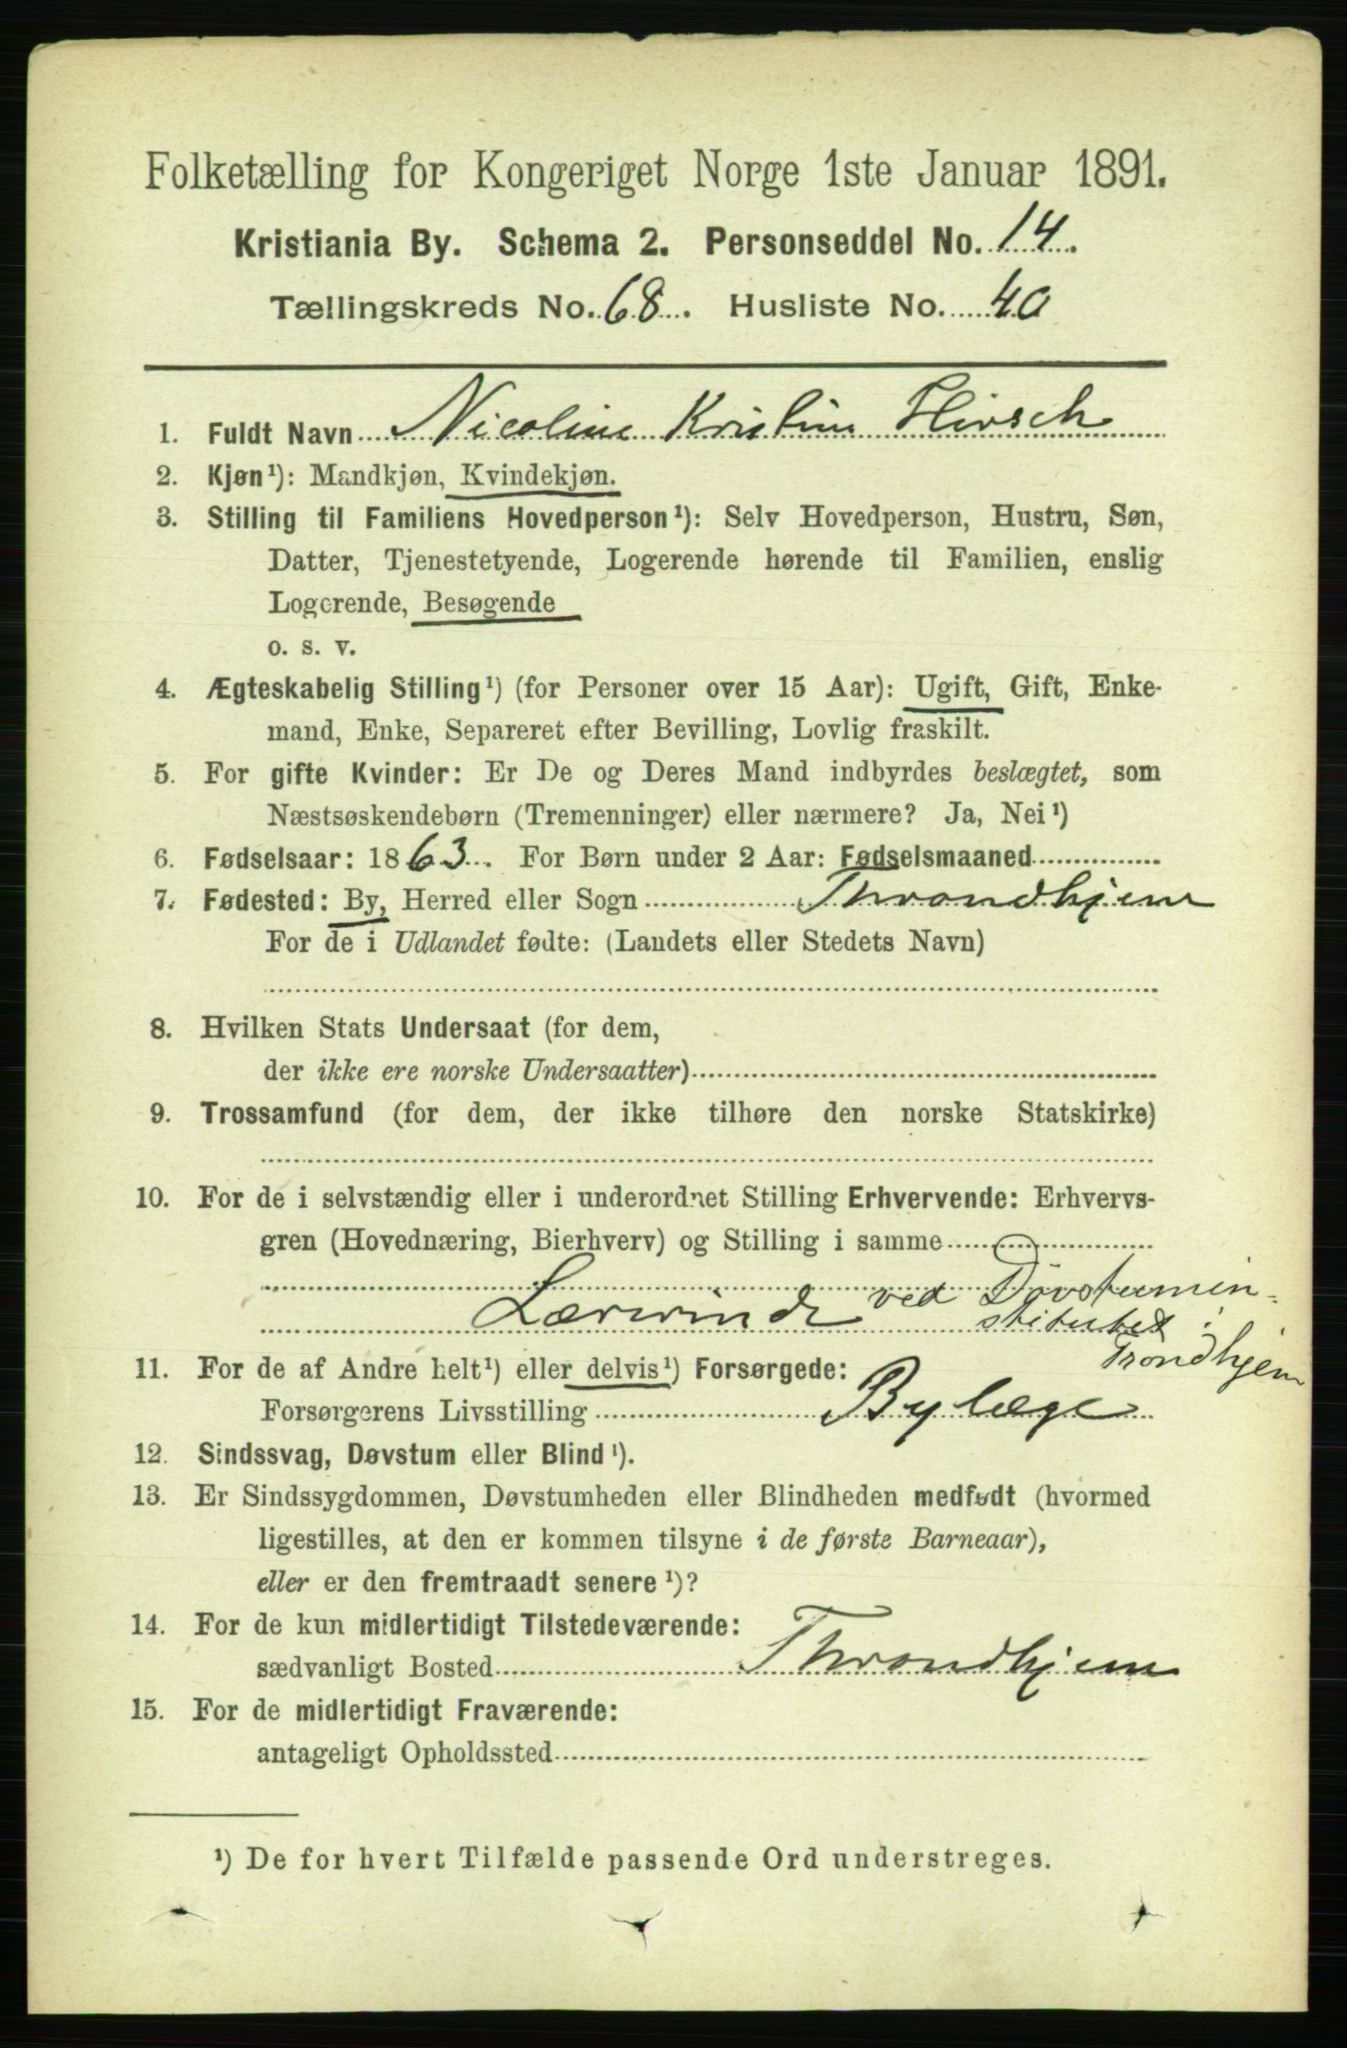 Folketælling for Kongeriget Norge 1ste Januar 1891.
Kristiania By. Schema 2. Personseddel No. 14.
Tællingskreds No. 68. Husliste No. 40
1. Fuldt Navn Nicoline Kristine Hirsch
2. Kjøn¹): Mandkjøn, Kvindekjøn.
3. Stilling til Familiens Hovedperson¹): Selv Hovedperson, Hustru, Søn,
Datter, Tjenestetyende, Logerende hørende til Familien, enslig
Logerende, Besøgende
o. s. v.
4. Ægteskabelig Stilling¹) (for Personer over 15 Aar): Ugift, Gift, Enke-
mand, Enke, Separeret efter Bevilling, Lovlig fraskilt.
5. For gifte Kvinder: Er De og Deres Mand indbyrdes beslægtet, som
Næstsøskendebørn (Tremenninger) eller nærmere? Ja, Nei¹)
6. Fødselsaar: 1863. For Børn under 2 Aar: Fødselsmaaned
7. Fødested: By, Herred eller Sogn Throndhjem
For de i Udlandet fødte: (Landets eller Stedets Navn)
8. Hvilken Stats Undersaat (for dem,
der ikke ere norske Undersaatter)
9. Trossamfund (for dem, der ikke tilhøre den norske Statskirke)
10. For de i selvstændig eller i underordnet Stilling Erhvervende: Erhvervs-
gren (Hovednæring, Bierhverv) og Stilling i samme
Lærerinde ved Døvstumin-
stitutet i
Trondhjem
11. For de af Andre helt¹) eller delvis¹) Forsørgede:
Forsørgerens Livsstilling Bylæge
12. Sindssvag, Døvstum eller Blind¹).
13. Er Sindssygdommen, Døvstumheden eller Blindheden medfødt (hvormed
ligestilles, at den er kommen tilsyne i de første Barneaar),
eller er den fremtraadt senere¹)?
14. For de kun midlertidigt Tilstedeværende:
sædvanligt Bosted Throndhjem
15. For de midlertidigt Fraværende:
antageligt Opholdssted
¹) De for hvert Tilfælde passende Ord understreges.